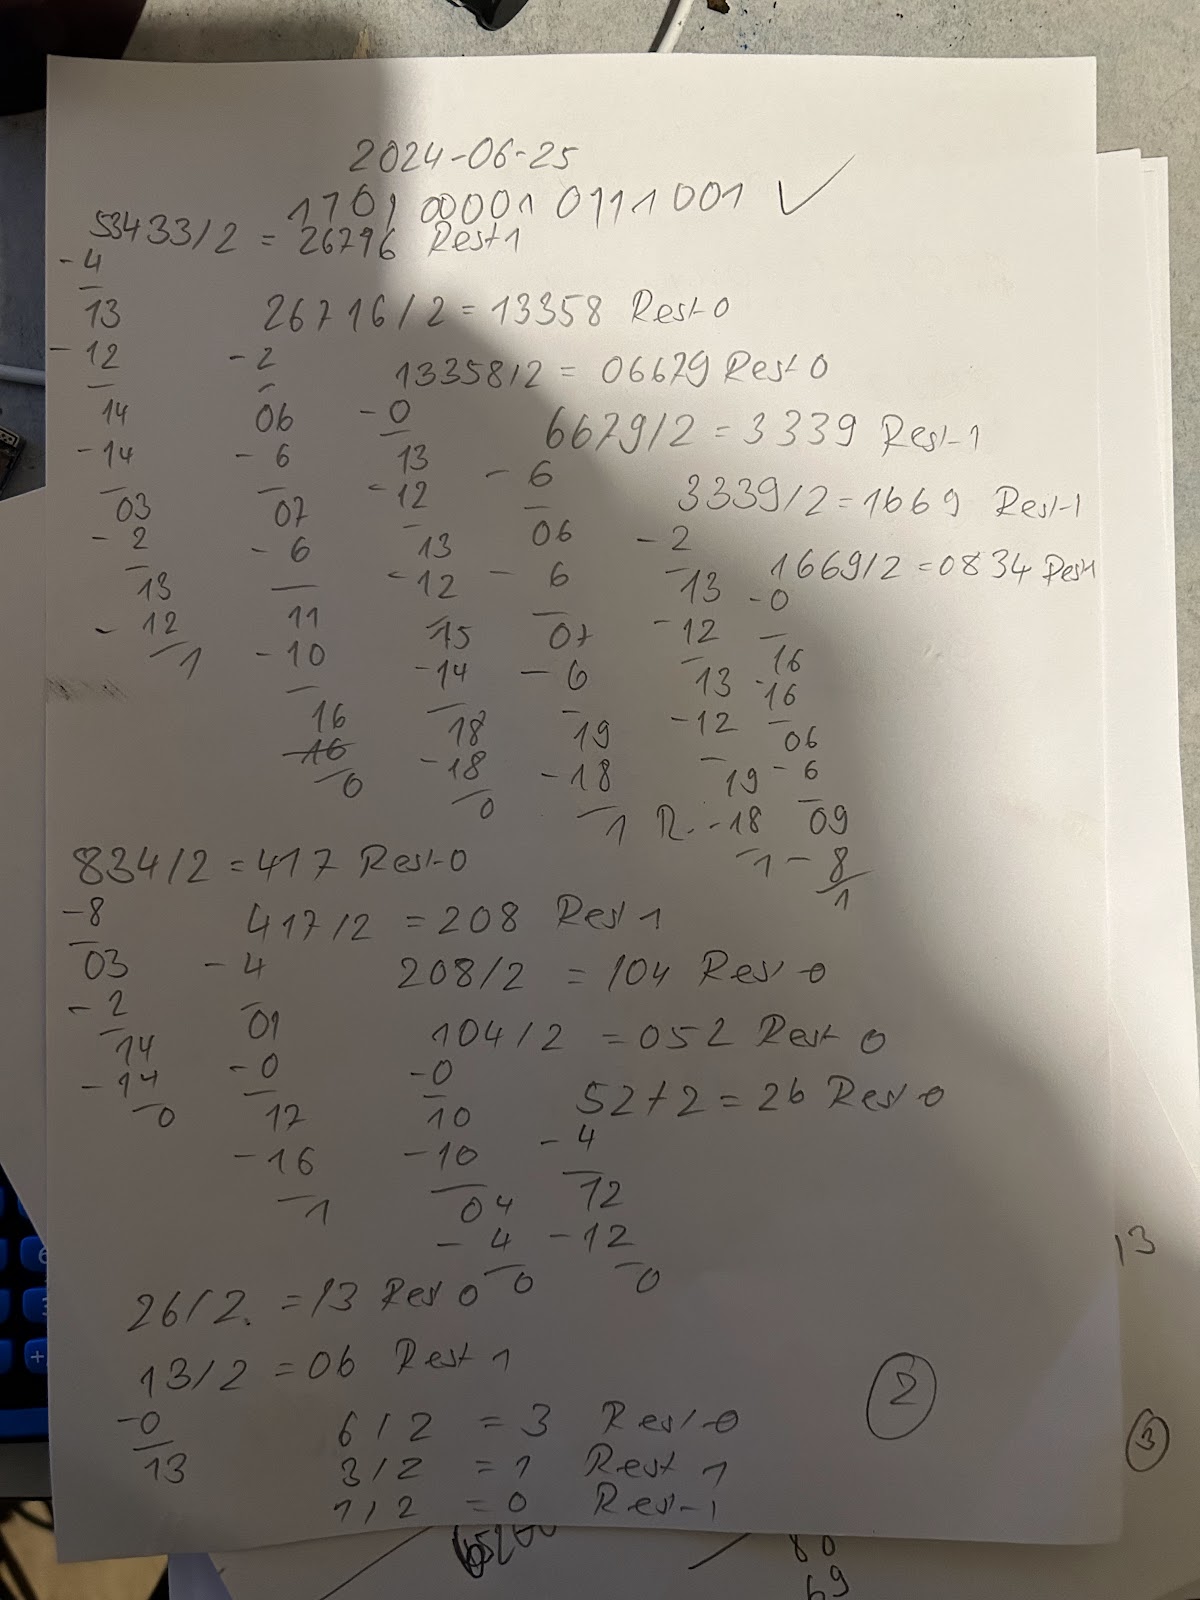 2024-06-25
1101 00001 0111001 ✓
53433/2 = 26716 Rest 1
-4
13
-12
14
-14
03
-2
13
-12
1
26716/2 = 13358 Rest 0
-2
06
-6
07
-6
11
-10
16
16
0
13358/2 = 06679 Rest 0
-0
13
-12
13
-12
15
-14
18
-18
0
6679/2 = 3339 Rest 1
-6
06
-6
07
-6
19
-18
1 R.
3339/2 = 1669 Rest 1
-2
13
-12
13
-12
19
-18
1
1669/2 = 0834 Rest 1
-0
16
-16
06
-6
09
-8
1
834/2 = 417 Rest 0
-8
03
-2
14
-14
0
417/2 = 208 Rest 1
-4
01
-0
17
-16
1
208/2 = 104 Rest 0
104/2 = 052 Rest 0
-0
10
-10
04
-4
0
52/2 = 26 Rest 0
-4
12
-12
0
26/2 = 13 Rest 0
13/2 = 06 Rest 1
-0
13
6/2 = 3 Rest 0
3/2 = 1 Rest 1
1/2 = 0 Rest 1
2
13
3
80
69